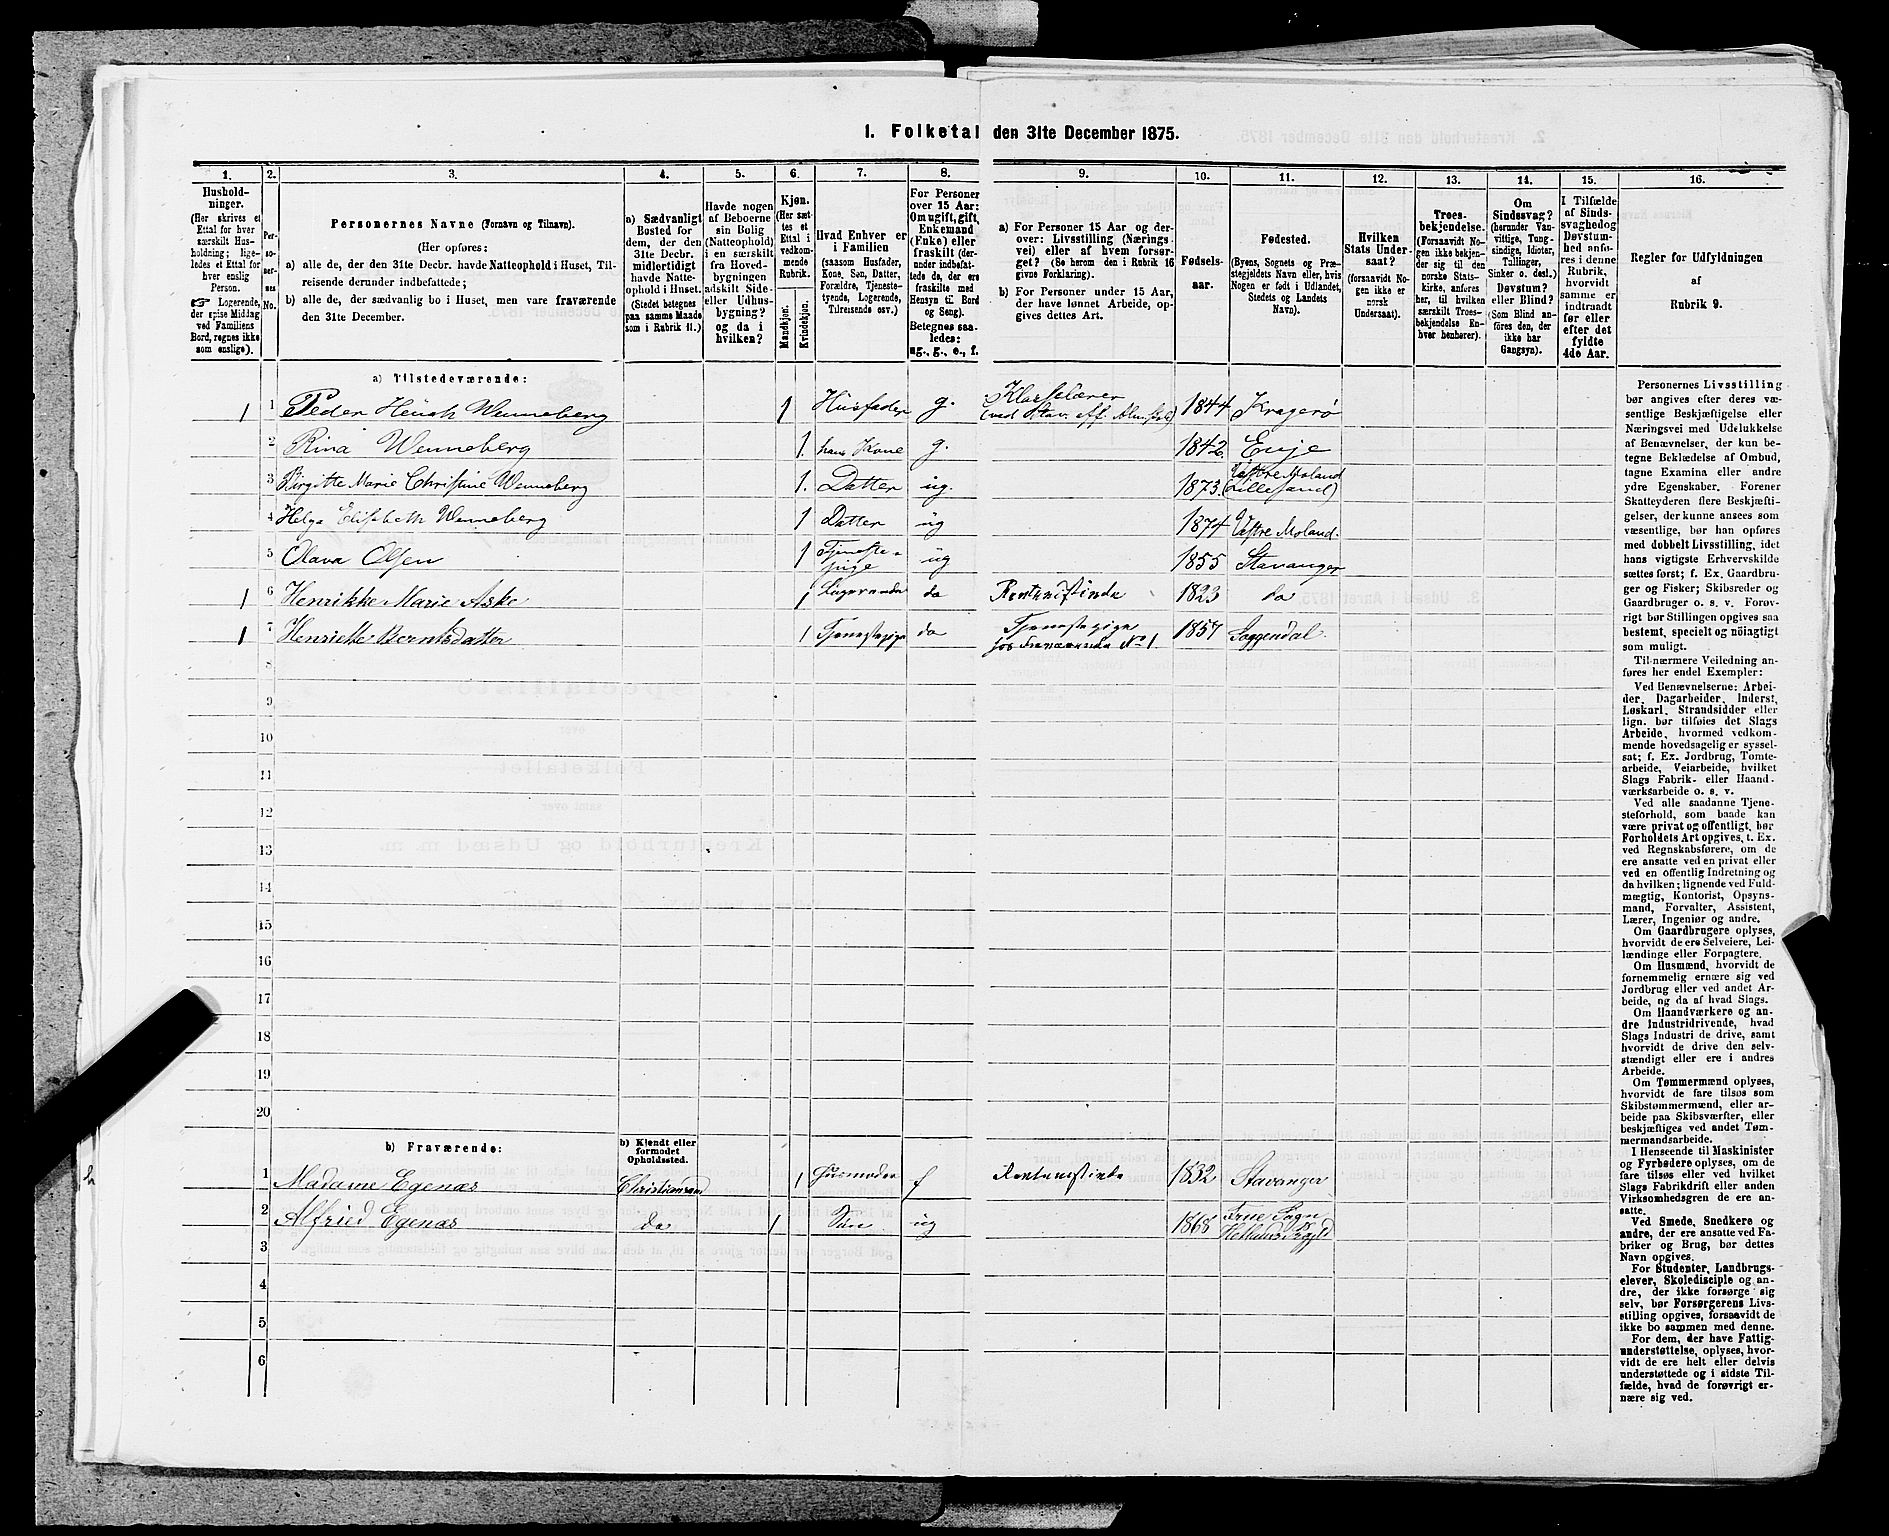 1. Folketal den 31te December 1875.
1. 2. 3. 4. 5. 6. 7. 8. 9. 10. 11. 12. 13. 14. 15. 16.
Hushold-
ninger.
(Her skrives et
Ettal for hver
særskilt Hus-
holdning; lige-
ledes et Ettal for
hver enslig
Person.
☞ Logerende,
der spise Middag
ved Familiens
Bord, regnes ikke
som enslige).
Per-
so-
ner-
nes
No.
Personernes Navne (Fornavn og Tilnavn).
(Her opføres:
a) alle de, der den 31te Decbr. havde Natteophold i Huset, Til-
reisende derunder indbefattede;
b) alle de, der sædvanlig bo i Huset, men vare fraværende
den 31te December.
a) Sædvanligt
Bosted for
dem, der den
31te Decbr.
midlertidigt
havde Natte-
ophold i Huset.
(Stedet betegnes
paa samme Maade
som i Rubrik 11.)
Havde nogen
af Beboerne
sin Bolig
(Natteophold)
i en særskilt
fra Hoved-
bygningen
adskilt Side-
eller Udhus-
bygning?
og da i
hvilken?
Kjøn.
(Her sæt-
tes et
Ettal i
vedkom-
mende
Rubrik.
Mandkjøn.
Kvindekjøn.
Hvad Enhver er
i Familien
(saasom Husfader,
Kone, Søn, Datter,
Forældre, Tjeneste-
tyende, Logerende,
Tilreisende osv.)
For Personer
over 15 Aar:
Om ugift, gift,
Enkemand
(Enke) eller
fraskilt (der-
under indbefat-
tede de, der ere
fraskilte med
Hensyn til Bord
og Seng).
Betegnes saa-
ledes:
ug., g., e., f.
a) For Personer 15 Aar og der-
over: Livsstilling (Nærings-
vei) eller af hvem forsør-
get? (Se herom den i Rubrik 16
givne Forklaring).
b) For Personer under 15 Aar,
der have lønnet Arbeide, op-
gives dettes Art.
Fødsels-
aar.
Fødested.
(Byens, Sognets og Præ-
stegjeldets Navn eller, hvis
Nogen er født i Udlandet,
Stedets og Landets
Navn).
Hvilken
Stats Under-
saat?
(forsaavidt No-
gen ikke er
norsk
Undersaat).
Troes-
bekjendelse.
(Forsaavidt No-
gen ikke bekjen-
der sig til den
norske Stats-
kirke, anføres
her, til hvilken
særskilt Troes-
bekjendelse En-
hver henhører).
Om
Sindssvag?
(herunder Van-
vittige, Tung-
sindige, Idioter,
Tullinger,
Sinker o. desl.)
Døvstum?
eller Blind?
(Som Blind an-
føres den, der
ikke har
Gangsyn).
I Tilfælde
af Sinds-
svaghed og
Døvstum-
hed anfø-
res i denne
Rubrik,
hvorvidt
samme er
indtraadt
før eller
efter det
fyldte
4de Aar.
Regler for Udfyldningen
af
Rubrik 9.
a) Tilstedeværende:
1 1 Peder Henrik Wenneberg 1 Husfader g. Klasselærer (ved Stav. off. Almskole) 1844 Kragerø
2 Rina Wenneberg 1. hans Kone g. 1842 Evje
3 Birgitte Marie Christine Wenneberg 1. Datter ug. 1873. Vestre Moland (Lillesand)
4 Helga Elisabeth Wenneberg 1 Datter ug 1874 Vestre Moland.
5 Olava Olsen 1 Tjeneste- pige ug 1855 Stavanger
1 6 Henrikke Marie Aske 1 Logerende do Rentenistinde 1823 do
1 7 Henriette Berntsdatter 1 Tjenestepige do Tjenestepige hos Fraværende No 1. 1857 Soggendal
8
9
10
11
12
13
14
15
16
17
18
19
20
b) Fraværende:
b) Kjendt eller
formodet
Opholdssted.
1 Madame Egenæs Christiansand 1 Husmoder f Rentenistinde 1832 Stavanger
2 Alfried Egenæs do 1 Søn ug 1868 Frue Sogn Hetlands Pgjld
3
4
5
6
Personernes Livsstilling
bør angives efter deres væ-
sentlige Beskjæftigelse eller
Næringsvei med Udelukkelse
af Benævnelser, der kun be-
tegne Beklædelse af Ombud,
tagne Examina eller andre
ydre Egenskaber. Forener
Skatteyderen flere Beskjæfti-
gelser, der kunne ansees som
væsentlige, bør han opføres
med dobbelt Livsstilling, idet
hans vigtigste Erhvervskilde
sættes først; f. Ex. Gaardbru-
ger og Fisker; Skibsreder og
Gaardbruger o. s. v. Forøv-
rigt bør Stillingen opgives saa
bestemt, specielt og nøiagtigt
som muligt.
Til nærmere Veiledning an-
føres her endel Exempler:
Ved Benævnelserne: Arbei-
der, Dagarbeider, Inderst,
Løskarl, Strandsidder eller
lign. bør tilføies det Slags
Arbeide, hvormed vedkom-
mende hovedsagelig er syssel-
sat; f. Ex. Jordbrug, Tomte-
arbeide, Veiarbeide, hvilket
Slags Fabrik- eller Haand-
værksarbeide o. s. v.
Ved alle saadanne Tjene-
steforhold, som baade kan
være privat og offentligt, bør
Forholdets Art opgives, t. Ex.
ved Regnskabsførere, om de
ere ansatte ved en privat eller
ved en offentlig Indretning og
da hvilken; lignende ved Fuld-
mægtig, Kontorist, Opsyns-
mand, Forvalter, Assistent,
Lærer, Ingeniør og andre.
Om Gaardbrugere oplyses,
hvorvidt de ere Selveiere, Lei-
lændinge eller Forpagtere.
Om Husmænd, hvorvidt de
fornemmelig ernære sig ved
Jordbrug eller ved andet Ar-
beide, og da af hvad Slags.
Om Haandværkere og an-
dre Industridrivende, hvad
Slags Industri de drive, samt
hvorvidt de drive den selv-
stændigt eller ere i andres
Arbeide.
Om Tømmermænd oplyses,
hvorvidt de fare tilsøs som
Skibstømmermænd, eller ar-
beide paa Skibsværfter, eller
beskjæftiges ved andet Tøm-
mermandsarbeide.
I Henseende til Maskinister
og Fyrbødere oplyses, om de
fare tilsøs eller ved hvilket
Slags Fabrikdrift eller anden
Virksomhedsgren de ere an-
satte.
Ved Smede, Snedkere og
andre, der ere ansatte ved Fa-
briker og Brug, bør dettes
Navn opgives.
For Studenter, Landbrugs-
elever, Skoledisciple og an-
dre, der ikke forsørge sig
selv, bør Forsørgerens Livs-
stilling opgives, forsaavidt de
ikke bo sammen med denne.
For dem, der have Fattig-
understøttelse, oplyses, hvor-
vidt de ere helt eller delvis
understøttede og i sidste Til-
fælde, hvad de forøvrigt er-
nære sig ved.